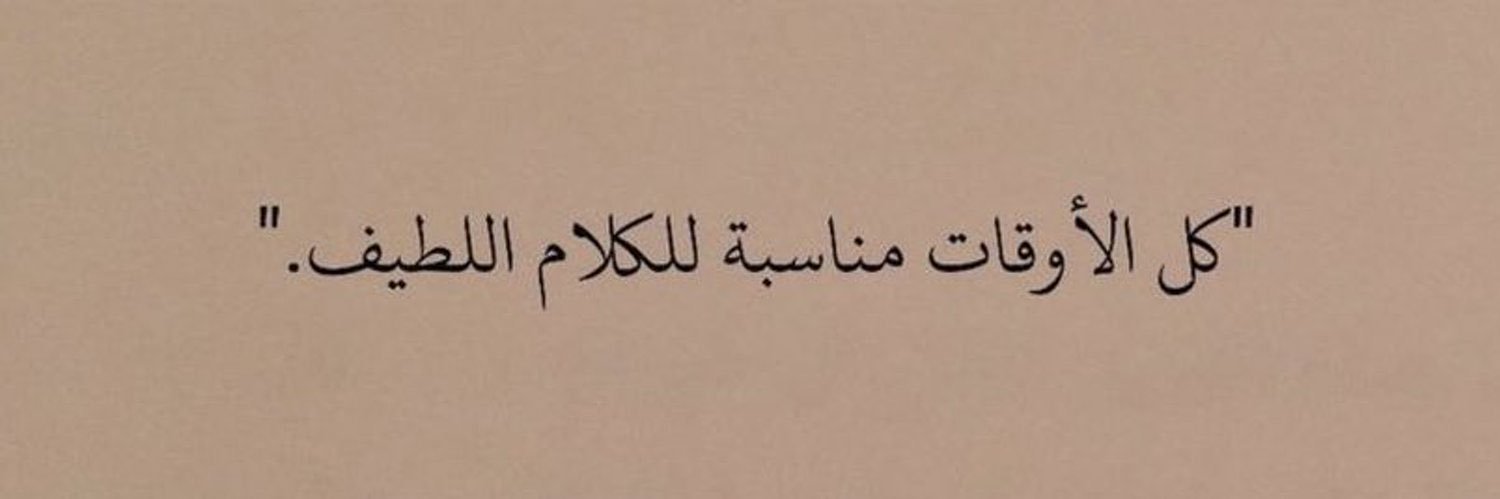 "كل الأوقات مناسبة للكلام اللطيف."